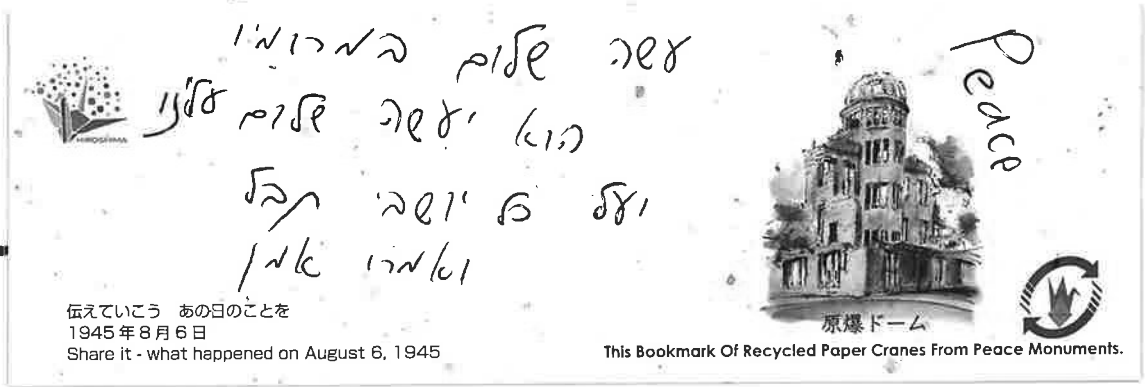 עשה שלום במרומיו
הוא יעשה שלום עלינו
ועל כל יושבי תבל
ואמרו אמן
Peace
HIROSHIMA
伝えていこう あの日のことを
1945年8月6日
Share it - what happened on August 6, 1945
原爆ドーム
This Bookmark Of Recycled Paper Cranes From Peace Monuments.